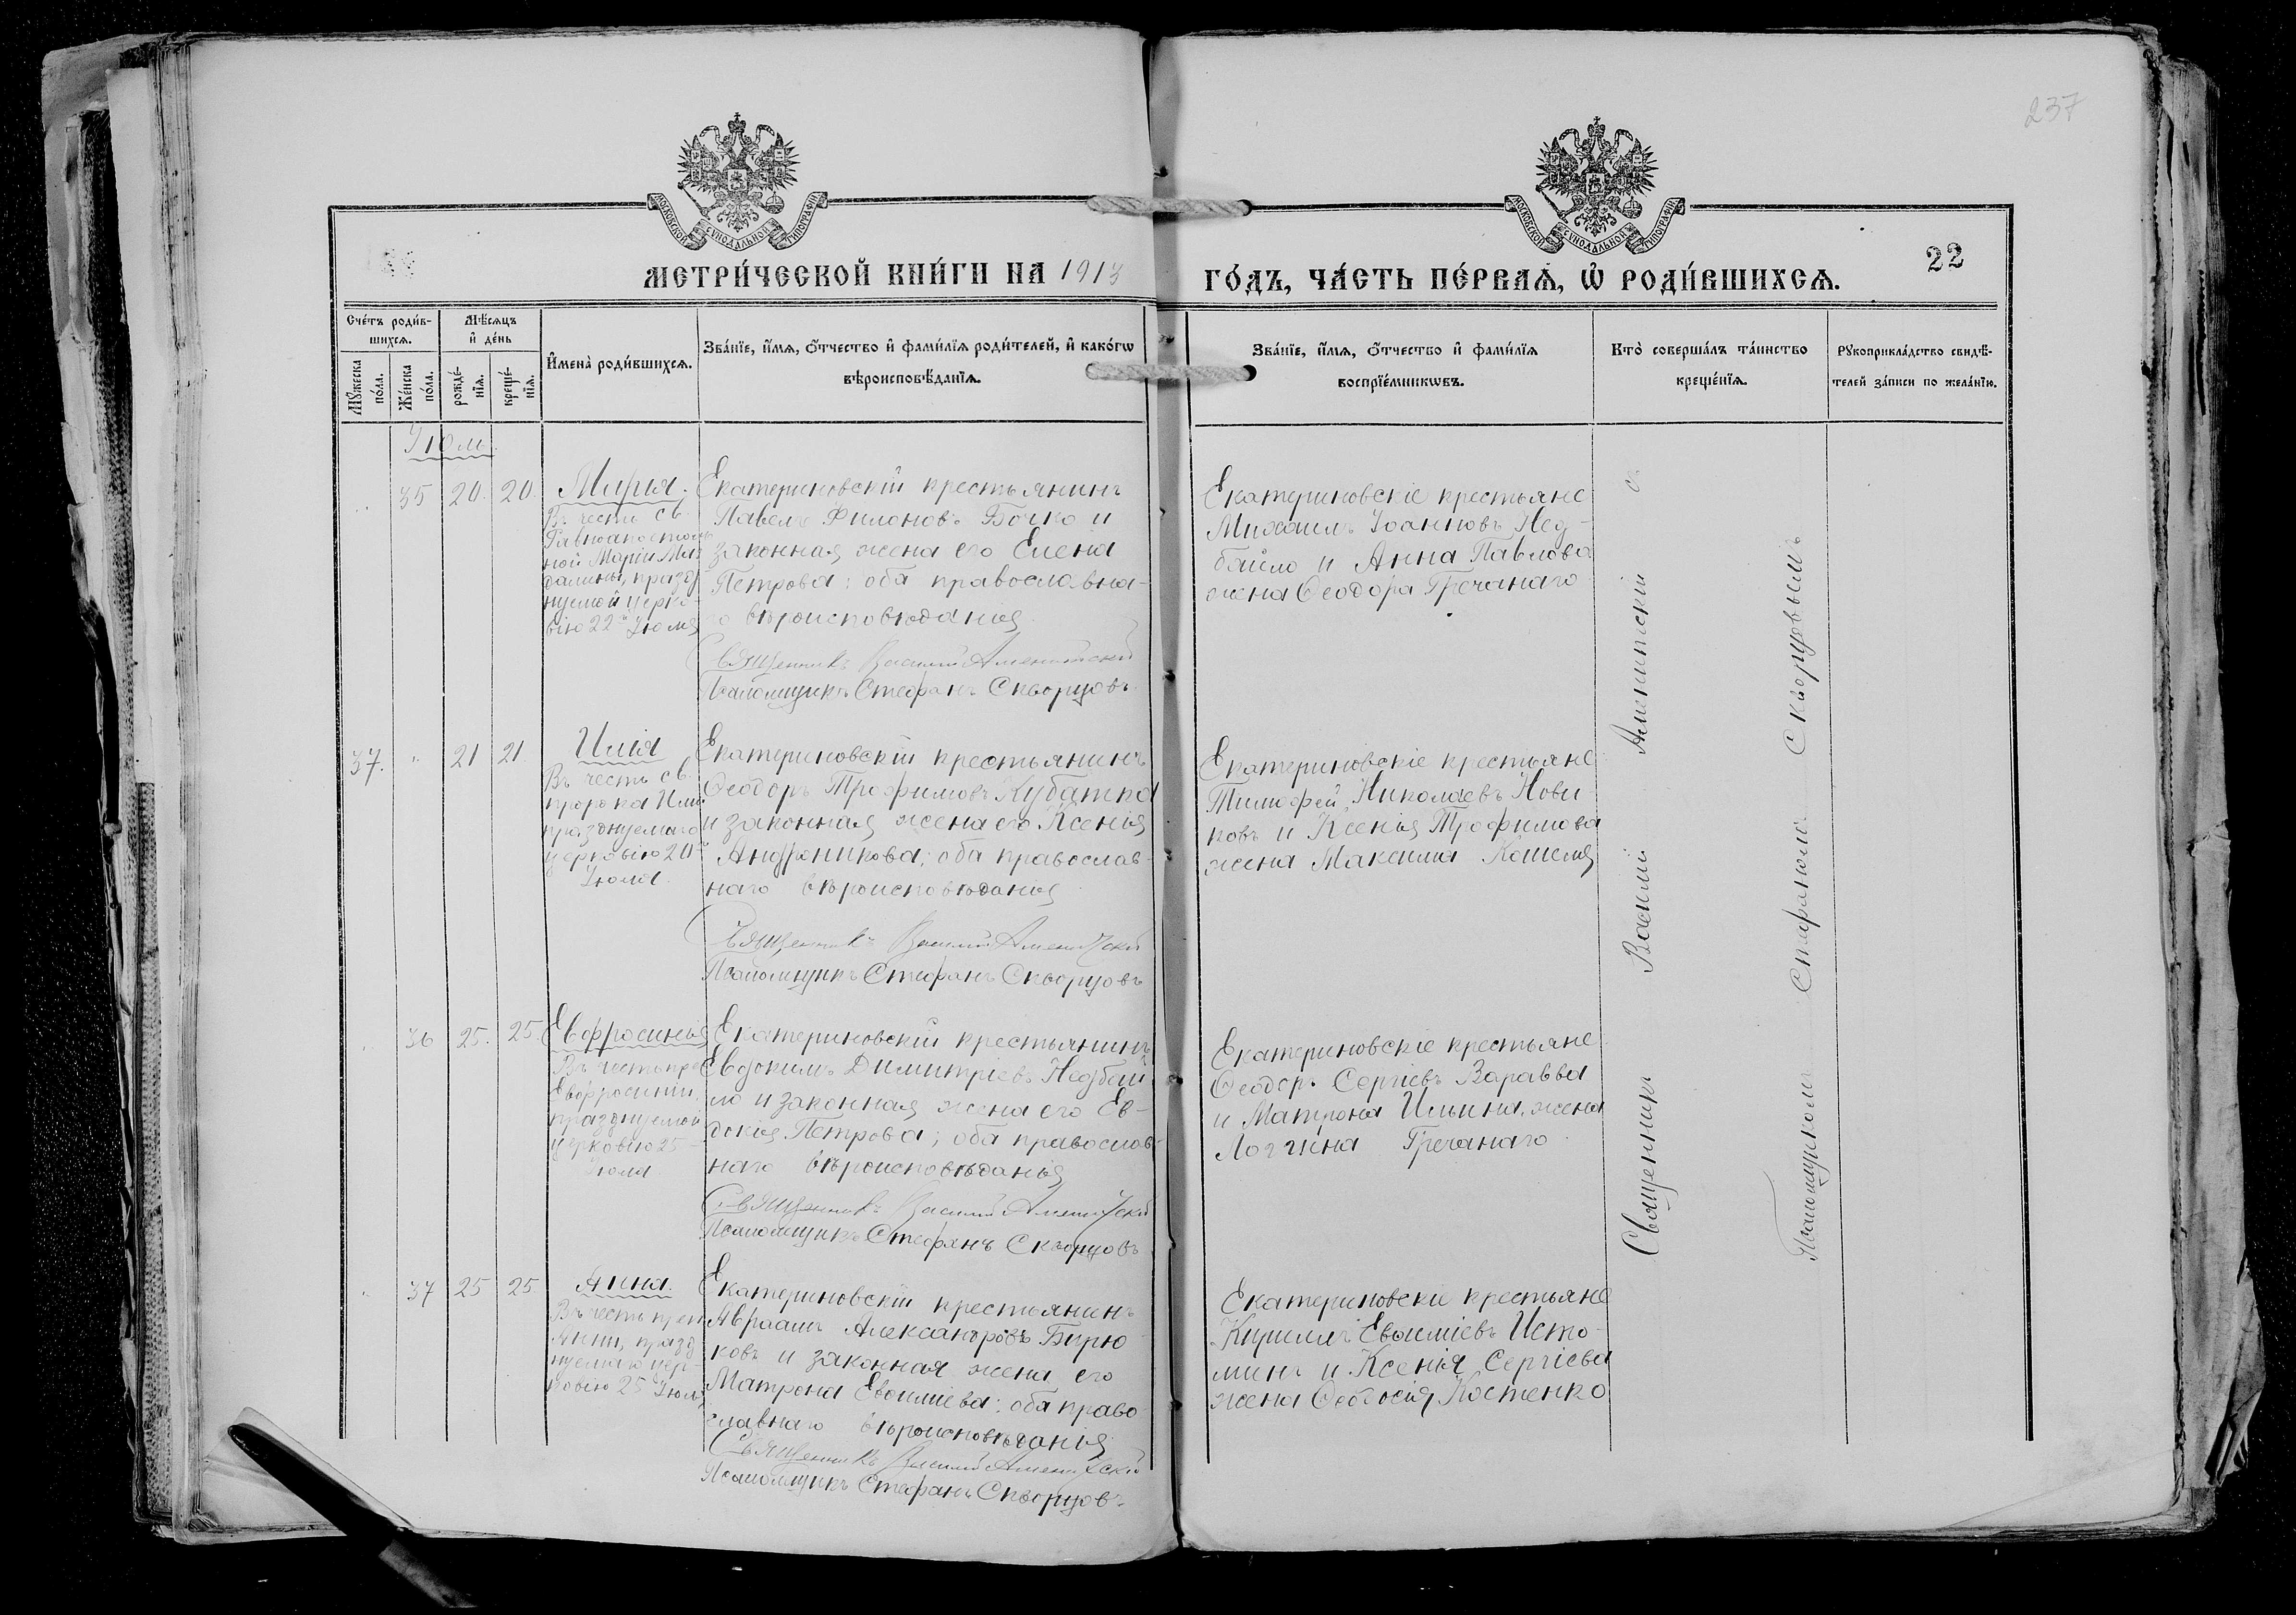 237
МОСКОВСКОЙ СѴНОДАЛЬНОЙ ТИПОГРАФІИ
МОСКОВСКОЙ СѴНОДАЛЬНОЙ ТИПОГРАФІИ
22
МЕТРИ́ЧЕСКОЙ КНИ́ГИ НА 1913
ГО́ДЪ, ЧА́СТЬ ПЕ́РВАѦ, Ѡ҆ РОДИ́ВШИХСѦ.
Сче́тъ роди́в-
шихсѧ.
Мѣ́сѧцъ
и҆ де́нь
Мꙋ́жеска
по́ла.
Же́нска
по́ла.
рожде́-
нїѧ.
креще́-
нїѧ.
И҆мена̀ роди́вшихсѧ.
Зва́нїе, и҆́мѧ, ѻ҆́тчество и҆ фами́лїѧ роди́телей, и҆ како́гѡ
вѣроисповѣ́данїѧ.
Зва́нїе, и҆́мѧ, ѻ҆́тчество и҆ фами́лїѧ
воспрїе́мникѡвъ.
Кто̀ соверша́лъ та́инство
креще́нїѧ.
Рꙋкоприкла́дство свидѣ́-
телей за́писи по жела́нїю.
Іюль
35 20. 20. Марія.
Въ честь св.
Равноапостоль
ной Маріи Маг
далины, празд
нуемой церко-
вію 22го Іюля
Екатериновскій крестьянинъ
Павелъ Филоновъ Бочко и
законная жена его Елена
Петрова; оба православна-
го вѣроисповѣданія
Священникъ Василій Аменитскій
Псаломщикъ Стефанъ Скворцовъ.
Екатериновскіе крестьяне
Михаилъ Іоанновъ Нед-
байло и Анна Павлова
жена Ѳеодора Гречанаго
37. " 21 21. Илія
Въ честь св.
пророка Иліи
празднуемаго
церковію 20го
Іюля.
Екатериновскій крестьянинъ
Ѳеодоръ Трофимовъ Кубатка
и законная жена его Ксенія
Андроникова; оба православ-
наго вѣроисповѣданія
Священникъ Василій Аменитскій
Псаломщикъ Стефанъ Скворцовъ
Екатериновскіе крестьяне
Тимофей Николаевъ Нови-
ковъ и Ксенія Трофимова
жена Максима Кошеля
36 25. 25. Евфросинія
Въ честь пре
Евфросиніи,
празднуемой
церковію 25-
Іюля.
Екатериновскій крестьянинъ
Евдокимъ Димитріевъ Недбай
ло и законная жена его Ев-
докія Петрова; оба православ-
наго вѣроисповѣданія
Священникъ Василій Аменитскій
Псаломщикъ Стефанъ Скворцовъ
Екатериновскіе крестьяне
Ѳеодоръ Сергіевъ Варавва
и Матрона Ильина, жена
Логгина Гречанаго
37 25 25. Анна.
Въ честь преп
Анны, празд
нуемаго цер-
ковію 25 Іюля
Екатериновскій крестьянинъ
Авраамъ Александровъ Бирю
ковъ и законная жена его
Матрона Евѳиміева; оба право
славнаго вѣроисповѣданія
Священникъ Василій Аменитскій
Псаломщикъ Стефанъ Скворцовъ.
Екатериновскіе крестьяне
Кириллъ Евѳиміевъ Исто-
минъ и Ксенія Сергіева
жена Ѳеодосія Костенко
Священникъ Василій Аменитскій съ
Псаломщикомъ Стефаномъ Скворцовымъ